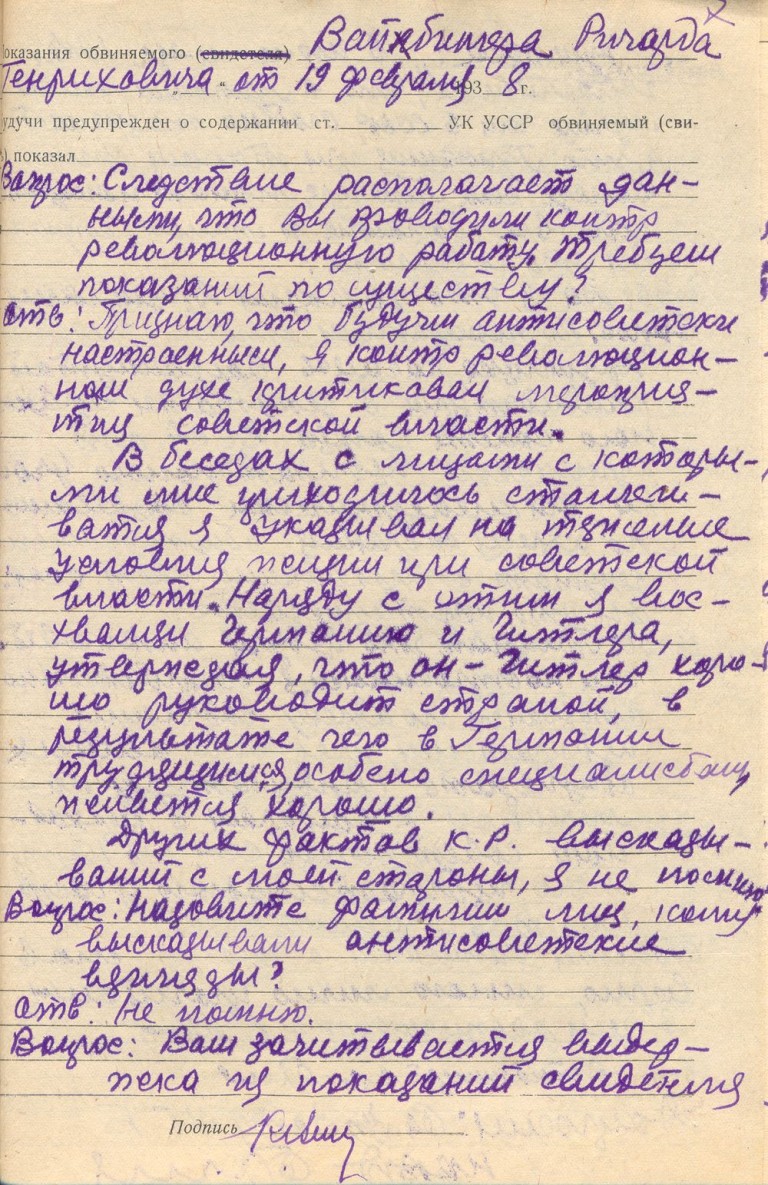 оказания обвиняемого (свидетеля) Вайхбингера Ричарда
Генриховича от 19 февраля 1938 г.
удучи предупрежден о содержании ст. УК УССР обвиняемый (сви-
) показал
Вопрос: Следствие располагает дан-
ными, что Вы проводили контр
революционную работу. Требуем
показаний по существу?
отв: Признаю, что будучи антисоветски
настроенным, я контрреволюцион-
ном духе критиковал мероприя-
тия советской власти.
В беседах с лицами с которы-
ми мне приходилось сталки-
ватся я указывал на тяжелые
условия жизни при советской
власти. Наряду с этим я вос-
хвалял Германию и Гитлера,
утверждая, что он - Гитлер хоро-
шо руководит страной, в
результате чего в Германии
трудящимся, особено специалистам,
живется хорошо.
Других фактов к.р. высказы-
ваний с моей стороны, я не помню
Вопрос: Назовите фамилии лиц, кому
высказывали антисоветские
взгляды?
отв: Не помню.
Вопрос: Вам зачитывается выдер-
жка из показаний свидетеля
Подпись